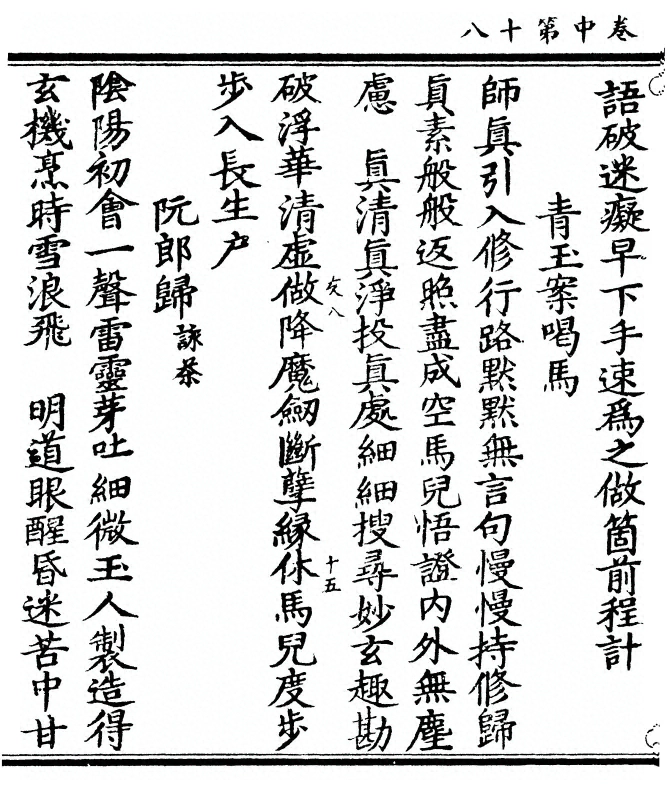 卷中第十八
語破迷癡早下手速爲之做箇前程計
青玉案喝馬
師眞引入修行路默默無言句慢慢持修歸
眞素般般返照盡成空馬兒悟證内外無塵
慮　眞清眞淨投眞處細細搜尋妙玄趣勘
破浮華清虛做降魔劒斷孽緣休馬兒度步
文八
十五
步入長生户
阮郎歸 詠茶
陰陽初會一聲雷靈芽吐細微玉人製造得
玄機烹時雪浪飛　明道眼醒昏迷苦中甘